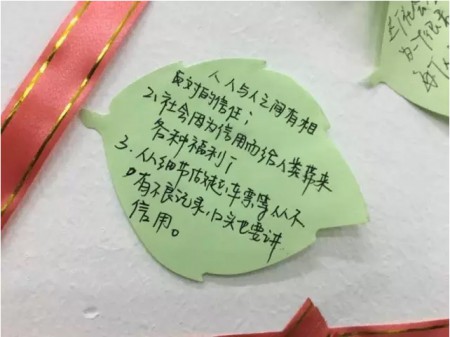 人人与人之间有相
反对的信任；
2、社会因为信用而给人类带来
各种福利；
3、从细节做起，车票等从不
有不良记录，口头也要讲
信用。